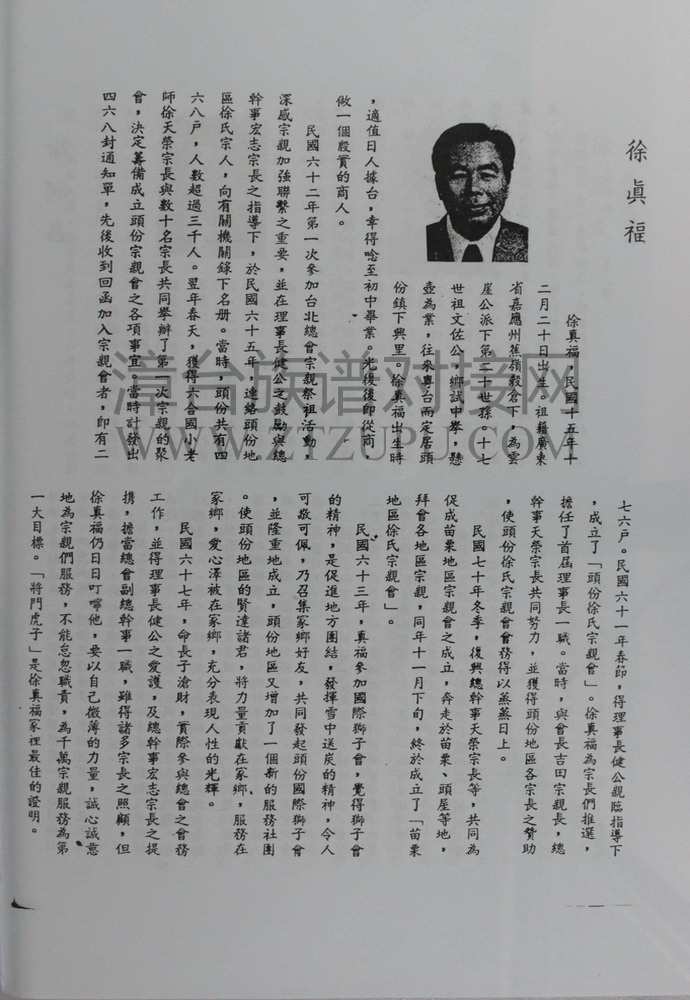 徐眞福
徐真福,民國十五年十
二月二十日出生。祖籍廣東
省嘉應州蕉嶺穀倉下,為雲
崖公派下第二十世孫。十七
世祖文佐公,鄉試中舉,懸
壺為業,往來粵台而定居頭
份鎮下興里。徐真福出生時
,適值日人據台,幸得唸至初中畢業。光復後即從商
做一個殷實的商人。
民國六十二年第一次參加台北總會宗親祭祖活動,
深感宗親加強聯繫之重要,並在理事長健公之鼓勵與總
幹事宏志宗長之指導下,於民國六十五年,連絡頭份地
區徐氏宗人,向有關機關錄下名册。當時,頭份共有四
六八户,人數超過三千人。翌年春天,獲得六合國小老
師徐天榮宗長與數十名宗長共同舉辦了第一次宗親的聚
會,決定籌備成立頭份宗親會之各項事宜。當時計發出
四六八封通知單,先後收到回函加入宗親會者,即有二
七六户。民國六十一年春節,得理事長健公親臨指導下
,成立了「頭份徐氏宗親會」。徐真福為宗長們推選,
擔任了首屆理事長一職。當時,與會長吉田宗親長,總
幹事天榮宗長共同努力,並獲得頭份地區各宗長之贊助
,使頭份徐氏宗親會會務得以蒸蒸日上。
民國七十年冬季,復興總幹事天榮宗長等,共同為
促成苗栗地區宗親會之成立,奔走於苗栗、頭屋等地,
拜會各地區宗親,同年十一月下旬,終於成立了「苗栗
地區徐氏宗親會」。
民國六十三年,真福參加國際獅子會,覺得獅子會
的精神,是促進地方團結,發揮雪中送炭的精神,令人
可敬可佩,乃召集家鄉好友,共同發起頭份國際獅子會
,並隆重地成立,頭份地區又增加了一個新的服務社團
。使頭份地區的賢達諸君,將力量貢獻在家鄉,服務在
家鄉,愛心澤被在家鄉,充分表現人性的光輝。
民國六十七年,命長子滄財,實際參與總會之會務
工作,並得理事長健公之愛護,及總幹事宏志宗長之提
携,擔當總會副總幹事一職,雖得諸多宗長之照顧,但
徐真福仍日日叮嚀他,要以自己微薄的力量,誠心誠意
地為宗親們服務,不能怠忽職責,為千萬宗親服務為第
一大目標。「將門虎子」是徐真福家裡最佳的證明。
漳台族谱对接网
WWW.ZTZUPU.COM